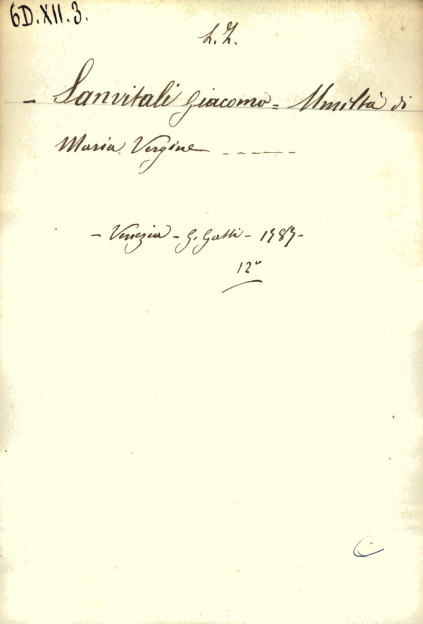 6D.XII.3.
L.Z.
- Sanvitali Giacomo = Umiltà di
Maria Vergine - - - - -
- Venezia - G. Gatti - 1787 -
12°
C